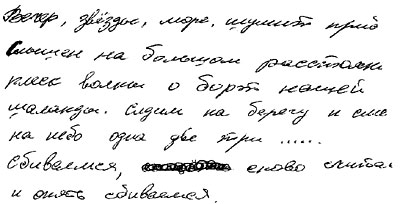 Вечер, звёзды, море, шумит приб
Слышен на большом расстояни
плеск волны о борт нашей
шаланды. Сидим на берегу и смо
на небо одна две три ......
Сбиваемся, снова считае
и опять сбиваемся.